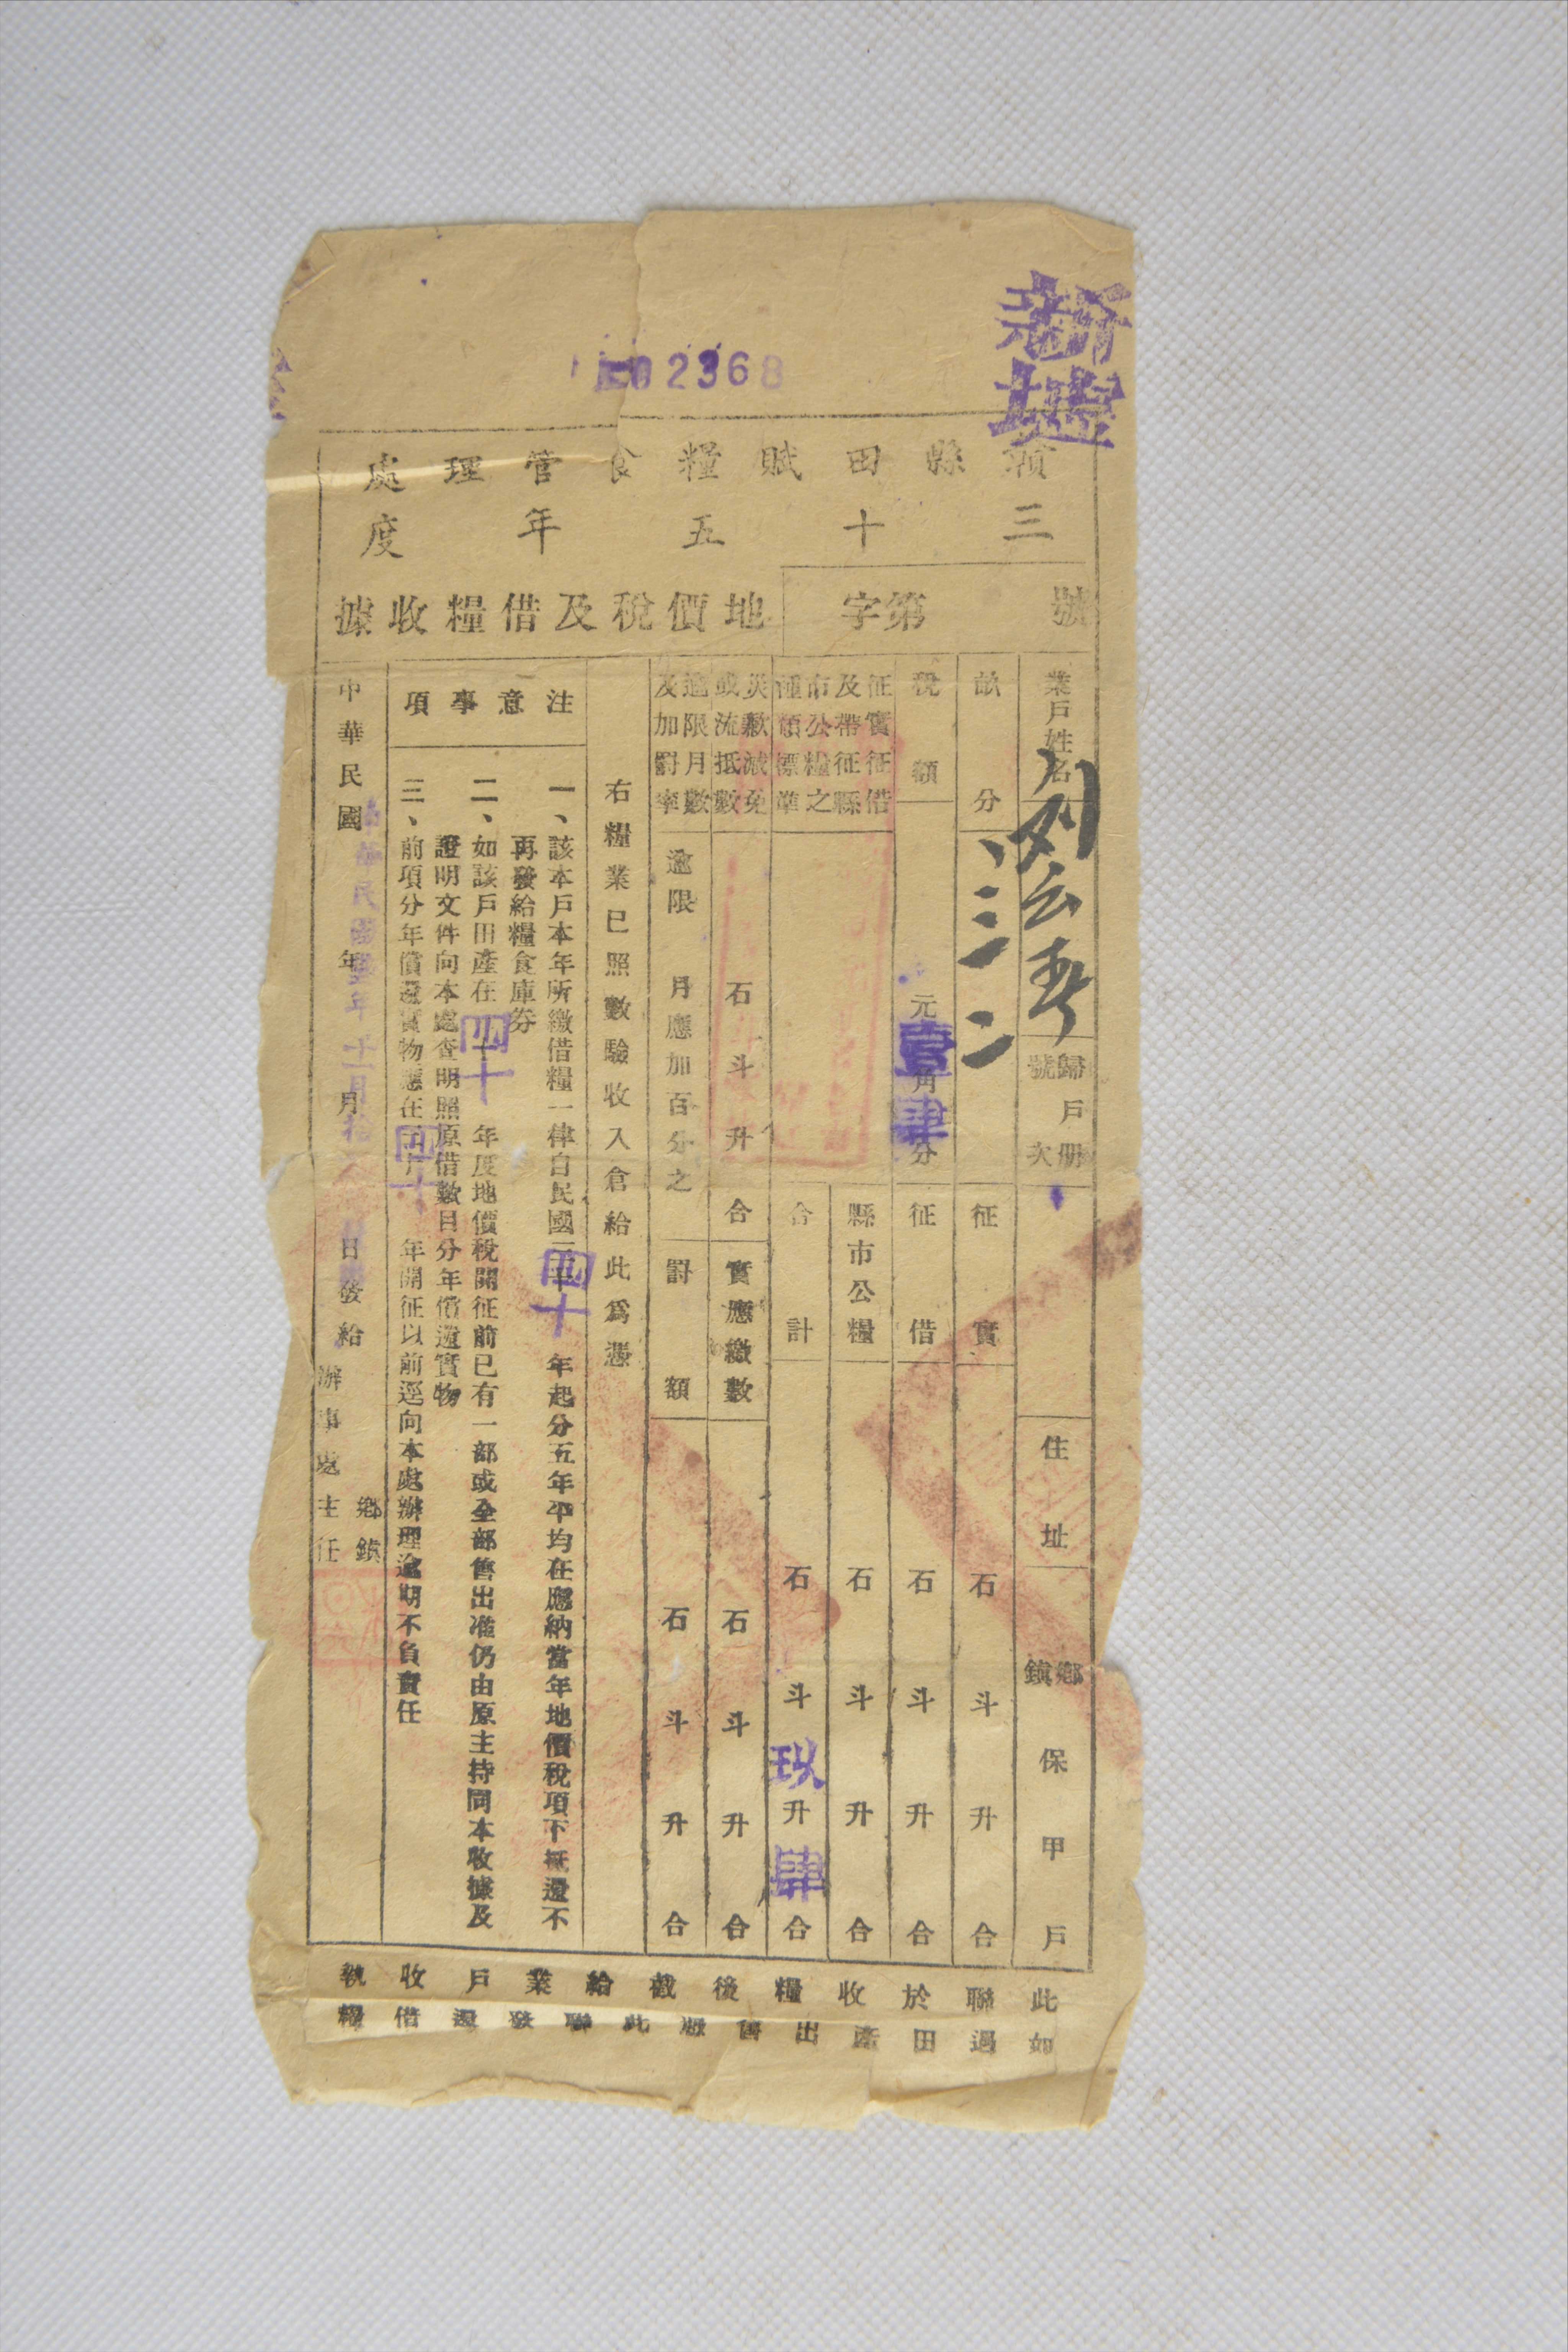 新豐
02368
贛縣田賦糧食管理處
三十五年度
號 字第
地價稅及借糧收據
業戶姓名
歸戶册號次
住址
鄉鎮 保 甲 戶
畝分
三 二
征實
石 斗 升 合
稅額
元壹角肆分
征借
石 斗 升 合
征實征借及帶征縣市公糧之種類標準
縣市公糧
石 斗 升 合
合計
石 斗玖升肆合
災歉減免或流抵數
石 斗 升 合
實應繳數
石 斗 升 合
逾限月數及加罰率
逾限 月應加百分之
罰額
石 斗 升 合
右糧業已照數驗收入倉給此為憑
注意事項
一、該本戶本年所繳借糧一律自民國四十年起分五年平均在應納當年地價稅項下抵還不
再發給糧食庫券
二、如該戶田產在四十年度地價稅開征前已有一部或全部售出准仍由原主持同本收據及
證明文件向本處查明照原借數目分年償還實物
三、前項分年償還實物應在四十年開征以前逕向本處辦理逾期不負責任
中華民國 年 月 日發給
鄉鎮
辦事處主任
此聯於收糧後截給業戶收執
如過田產出售憑此聯發還借糧